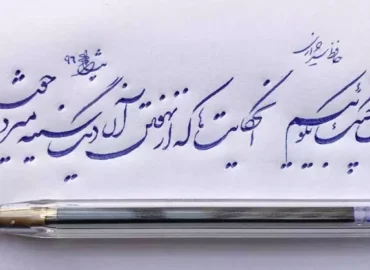 حافظ شیرازی
چنگ بگوئیم آن حکایت ها که از نهفتن آن دیگ سینه میزد جوش
۹۶